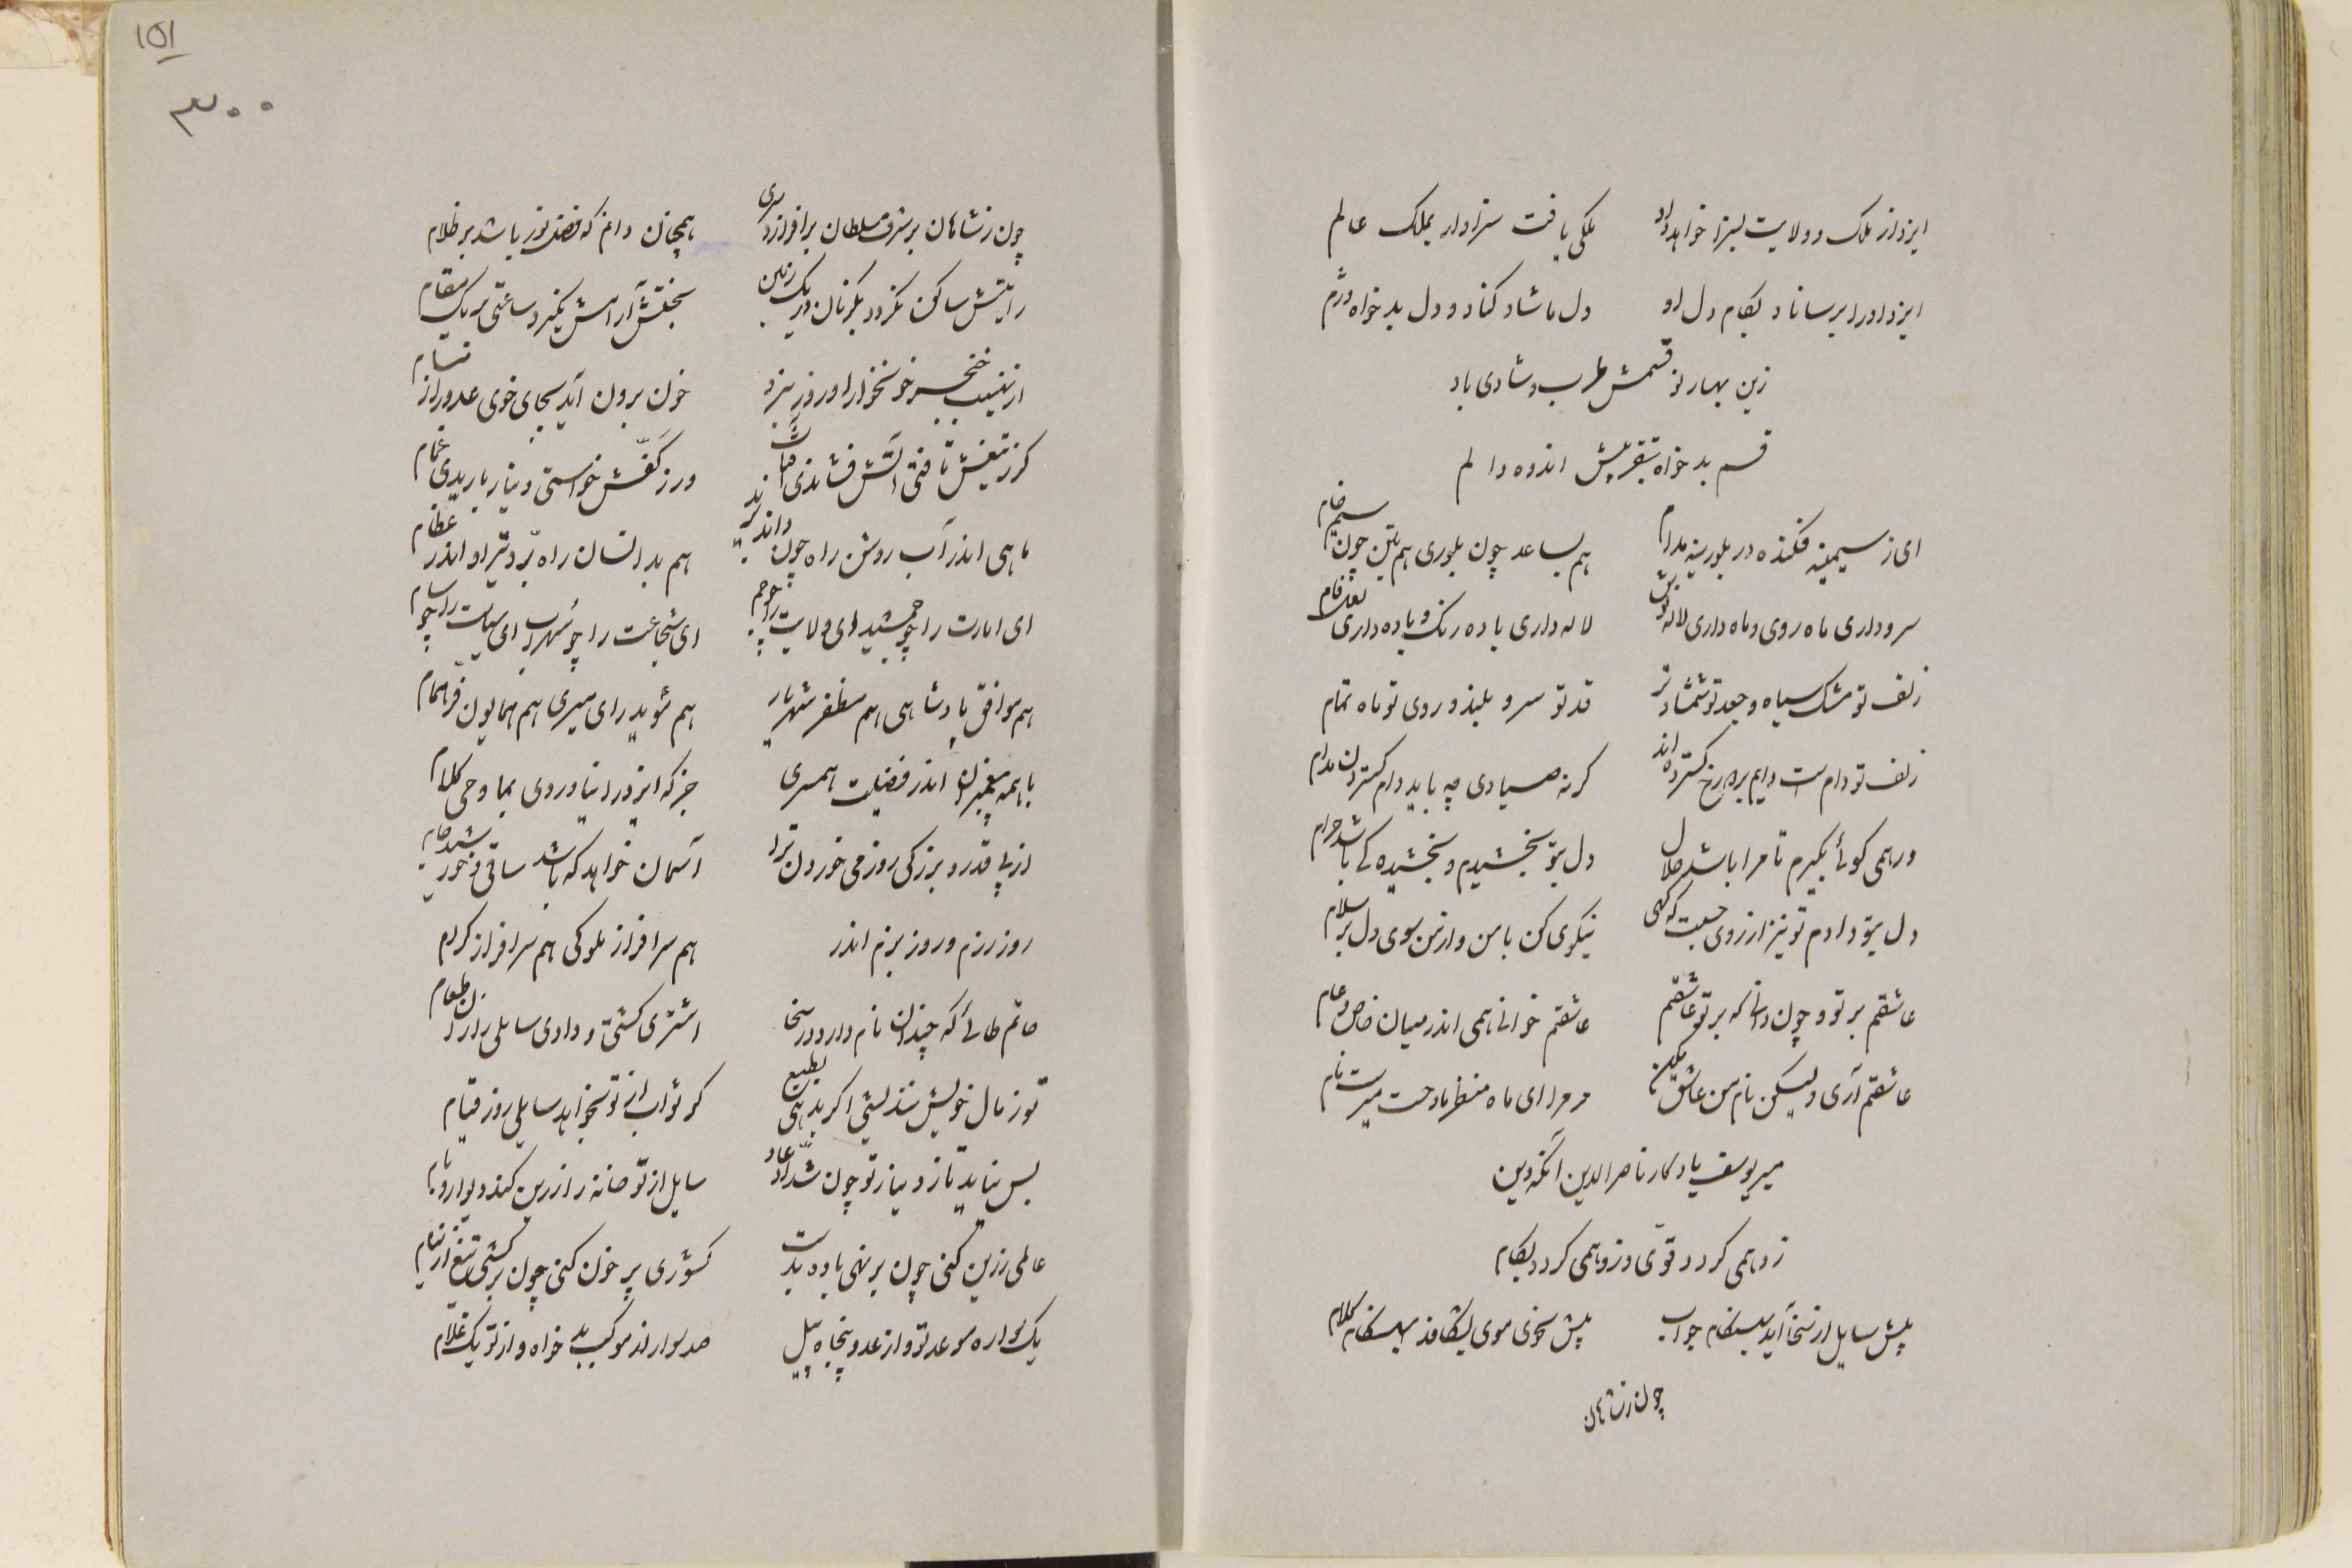 ایزد از ملک و ولایت لیزا خواهد داد ملکی یافت سزاوار بملک عالم
ایزد او را برساناد بکام دل او دل ما شاد کناد و دل بدخواه دژم
زین بهار نو قسمش طرب و شادی باد
قسم بدخواه اندوه و الم
ای ز سیمینه فکنده در بلورینه مدام هم بساعد چون بلوری هم بتن چون سیم خام
سرو داری ماه روی و ماه داری لاله پوش لاله داری باده رنگ و باده داری لعل فام
زلف تو مشک سیاه و جعد تو شمشاد تر قد تو سرو بلند و روی تو ماه تمام
زلف تو دام ست دایم بر رخ گسترده اند گرنه صیادی چه باید دام گستردن مدام
ور همی گوئی بگیرم تا مرا باشد حلال دل بتو بخشیدم و بخشیده کی باشد حرام
دل بتو دادم تو نیز از روی حسبت گه گهی نیکوی کن با من و از من سوی دل بر سلام
عاشقم بر تو و چون دانی که بر تو عاشقم عاشقم خوانی همی اندر میان خاص و عام
عاشقم آری ولیکن نام من عاشق مکن مر مرا ای ماه منظر مادحت میرست نام
میر یوسف یادگار ناصرالدین آنکه دین
زو همی گردد قوی و زو همی گردد بکام
پیش سایل از سخا آید بهنگام جواب پیش سخن موی بشکافد بهنگام کلام
چون زشاهان
۱۵۱
۳۰۰
چون زشاهان بر شرف سلطان برافرازد سری همچنان دانم که فضل نور باشد بر ظلام
رایتش ساکن نگردد یکزمان در یک زمین بختش آرامش نگیرد ساعتی بر یک مقام
از نهیب خنجر خونخوار او روز نبرد خون برون آید بجای خوی عدو را از مسام
گر ز تیغش تافتی آتش فشاندی آفتاب ور ز کفش خواستی دینار باریدی غمام
ماهی اندر آب روشن راه چون داند برید هم بدانسان راه برد تیر او اندر عظام
ای امارت را چو جمشید ای ولایت را چو جم ای شجاعت را چو سهراب ای سیاست را چو سام
هم موافق پادشاهی هم مظفر شهریار هم مؤید رای میری هم همایون فر همام
با همه پیغمبران اندر فضیلت همسری جز که ایزد را نیاوردی بما وحی و کلام
از پی قدر و بزرگی روز می خوردن ترا آسمان خواهد که باشد ساقی و خورشید جام
روز رزم و روز بزم اندر هم سرافراز ملوکی هم سرافراز کرام
حاتم طائی که چندان نام دارد در سخا اشتری کشتی و دادی سایلی را زان طعام
تو ز مال خویش نندیشی اگر بدهی بطبع گر ثواب از تو بخواهد سایلی روز قیام
بس نیاید تا ز دینار تو چون شداد عاد سایل از تو خانه را زرین کند دیوار و بام
عالمی زرین کنی چون بر نهی باده بدست کشوری پر خون کنی چون بر کشی تیغ از نیام
یک سواره مو عد تو و از عدو پنجاه پیل صد سوار از موکب بدخواه و از تو یک غلام